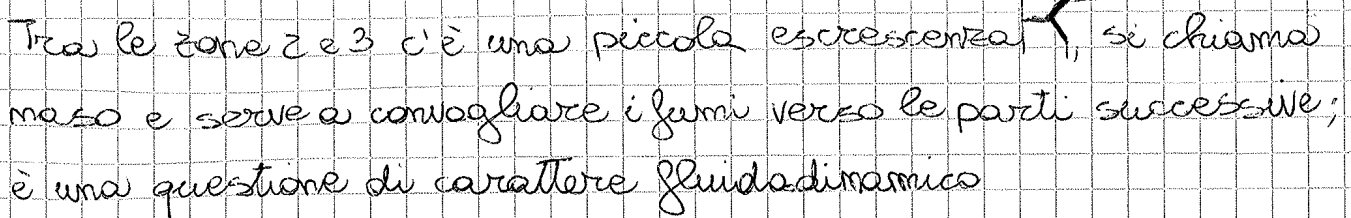 Tra le zone 2 e 3 c'è una piccola escrescenza, si chiama
naso e serve a convogliare i fumi verso le parti successive;
è una questione di carattere fluidadinamico